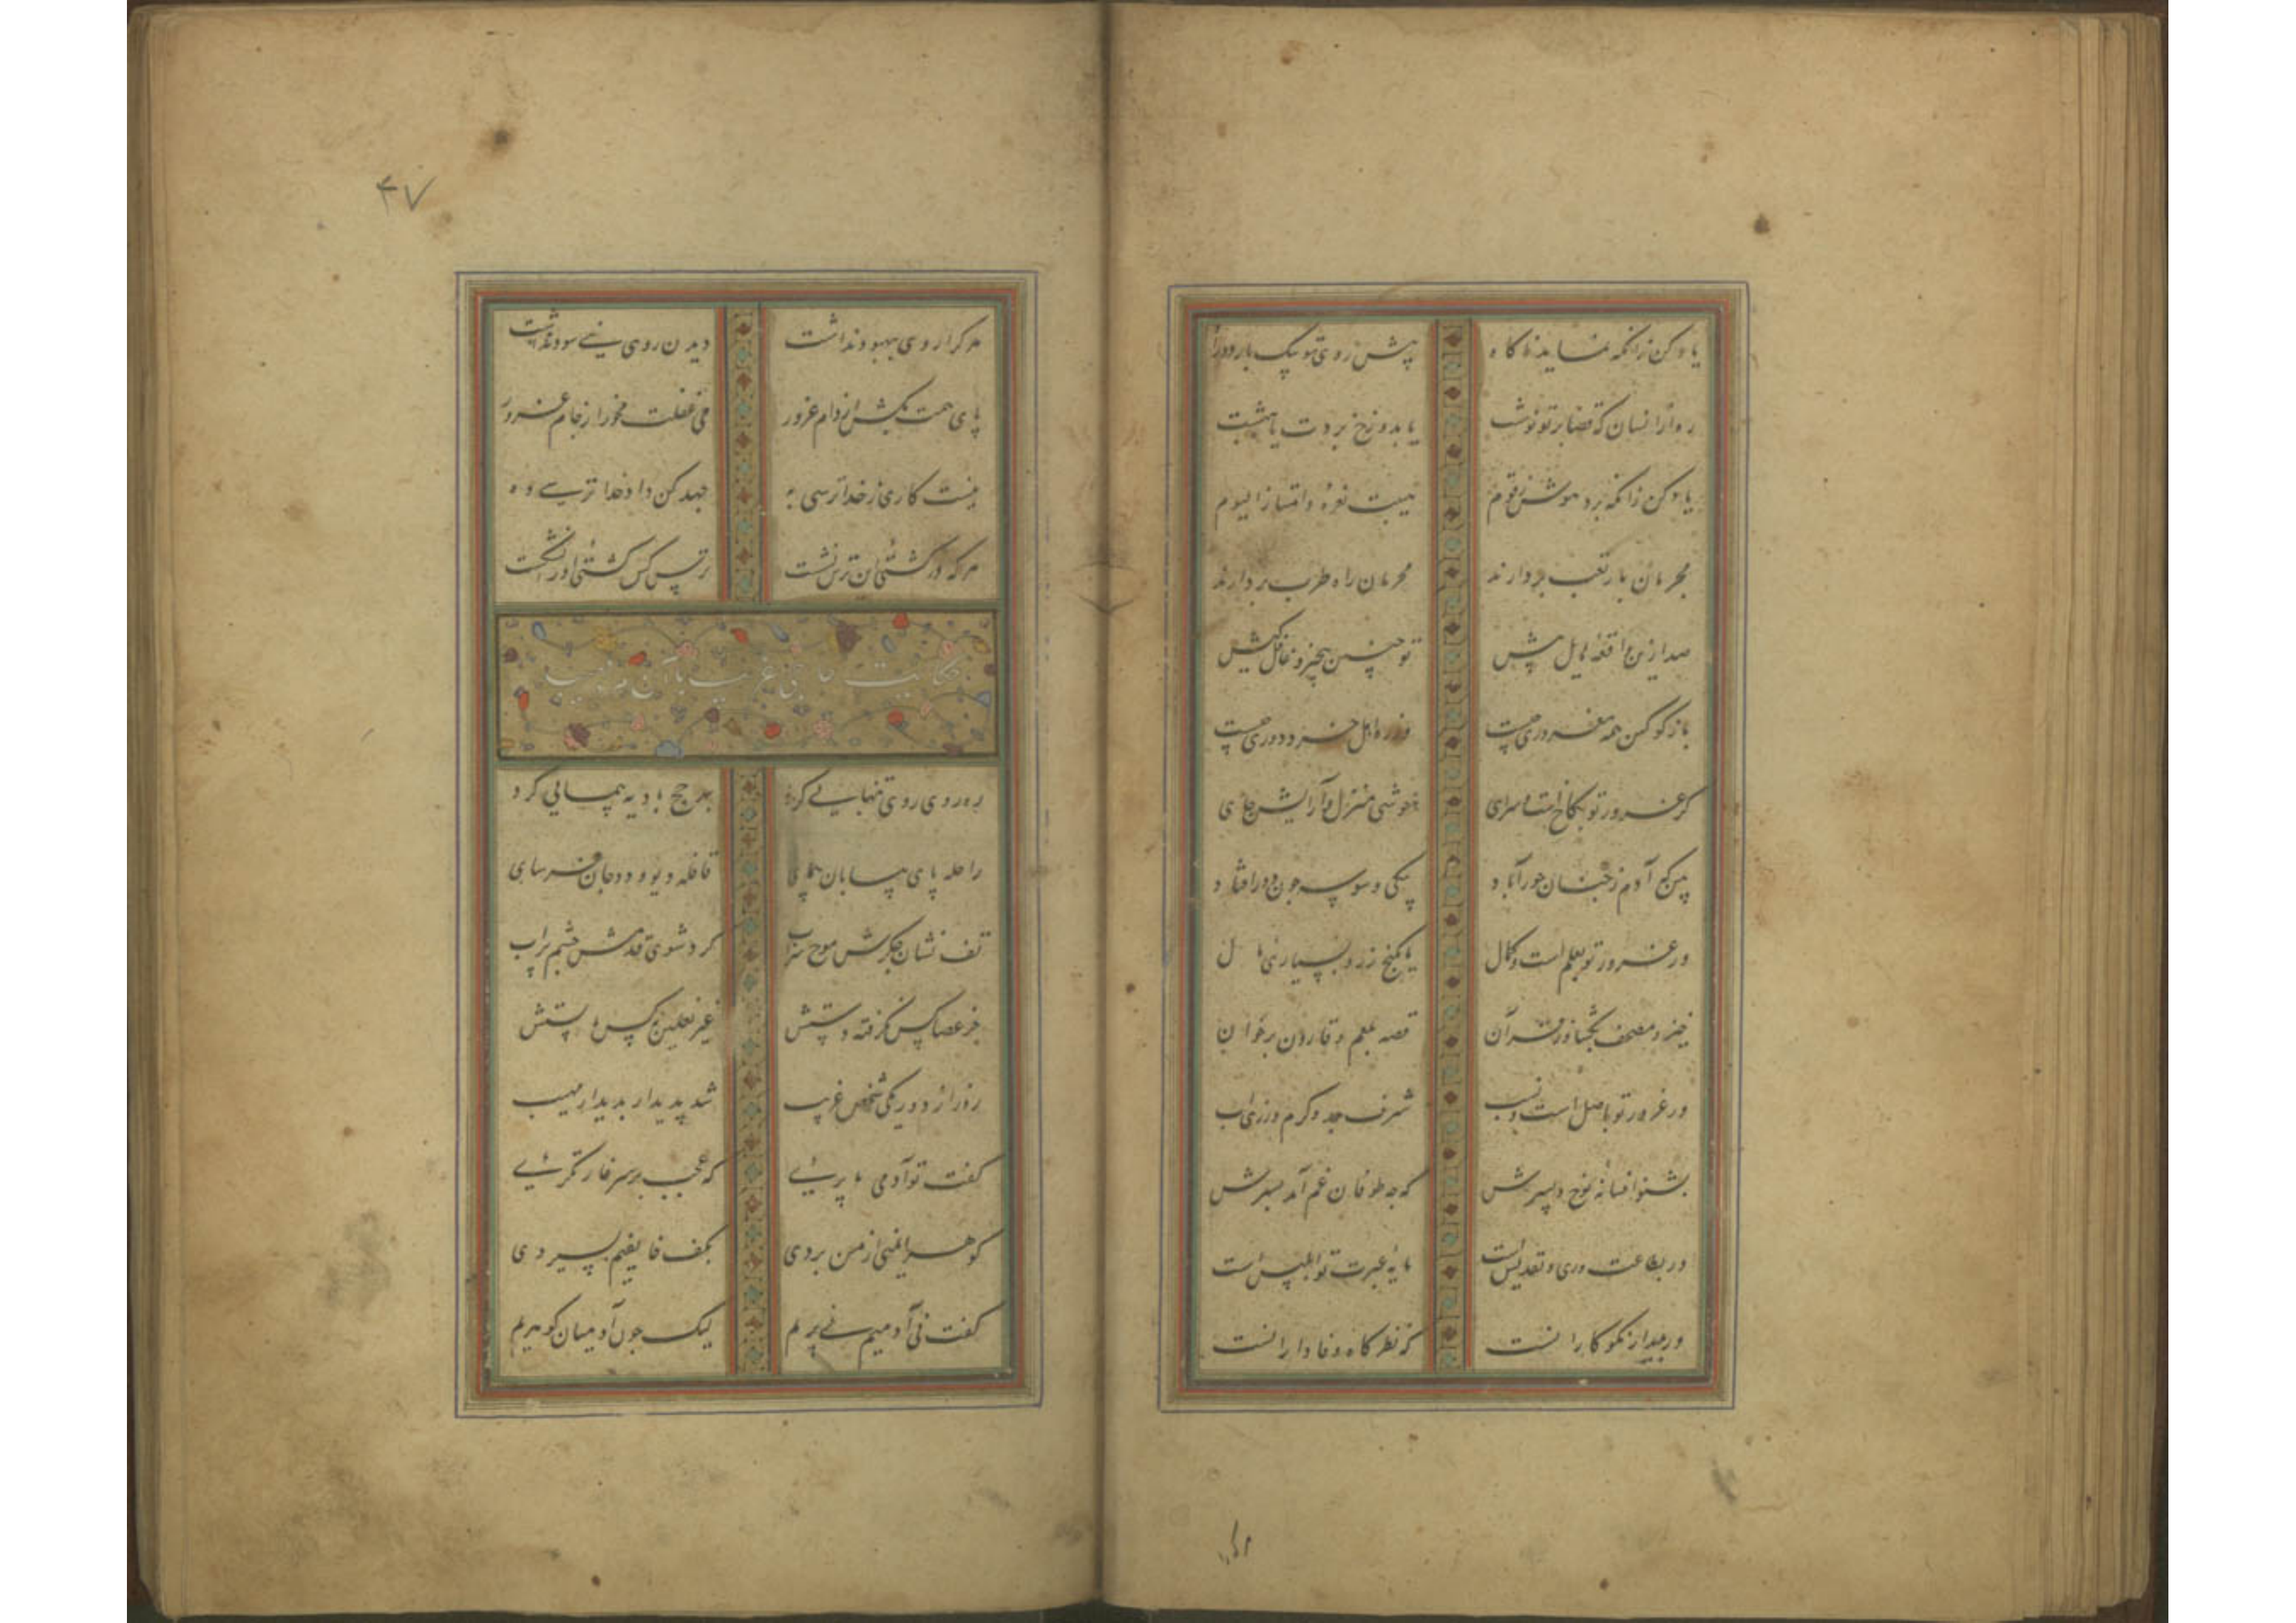 یاد کن زانکه نماید ناگاه پیش روی تو یک بار دو راه
رو از انسان که قضا بر تو نوشت یا بدوزخ بردت یا بهشت
یاد کن زانکه برد هوش ز قوم هیبت نعره وامتازوا الیوم
مجرمان بار تعب بردارند محرمان راه طرب بردارند
صد ازین واقعه هایل پیش تو چنین بیخبر و غافل کیش
باز گو کین همه مغروری چیست وز ره اهل خرد دوری چیست
گر غرور تو بکاخ است و سرای خوشی منزل و آرایش جای
بین که آدم ز جنان حور آباد بیکی وسوسه چون دور افتاد
ور غرور تو بعلم است و کمال یا بگنج زر و بسیاری مال
خیز و مصحف بگشا وز قرآن قصه بلعم و قارون بر خوان
ور غرور تو باصل است و نسب شرف جد و کرم ورزی اب
بشنو افسانه نوح و پسرش که چه طوفان غم آمد بسرش
ور بطاعت وری و تقدیس است مایه عبرت تو ابلیس است
ور بدیدار نکوکارانست که نظرگاه وفادارانست
۴۷
هر کرا روی ببهبود نداشت دیدن روی نبی سود نداشت
پای همت بکش از دام غرور می غفلت مخور از جام غرور
نیست کاری ز خدا ترسی به جهد کن داد خدا ترسی ده
هر که در کشتی این ترس نشست ترس کس کشتی او را نشکست
حکایت
رهروی روی تنهایی کرد بهر حج بادیه پیمایی کرد
راحله پای بیابان پیمای قافله دیو و دد جان فرسای
تف نشان جگرش موج سراب گرد شوی قدمش چشم پر آب
جز عصا کس نگرفته دستش غیر نعلین نه کس پا بستش
روزی از دور یکی شخص غریب شد پدیدار بدیدار مهیب
گفت تو آدمی یا پریی که عجب بر سر غارتگریی
گوهر ایمنی از من بردی بکف خایفیم بسپردی
گفت نی آدمیم نی پریم لیک چون آدمیان گوهریم